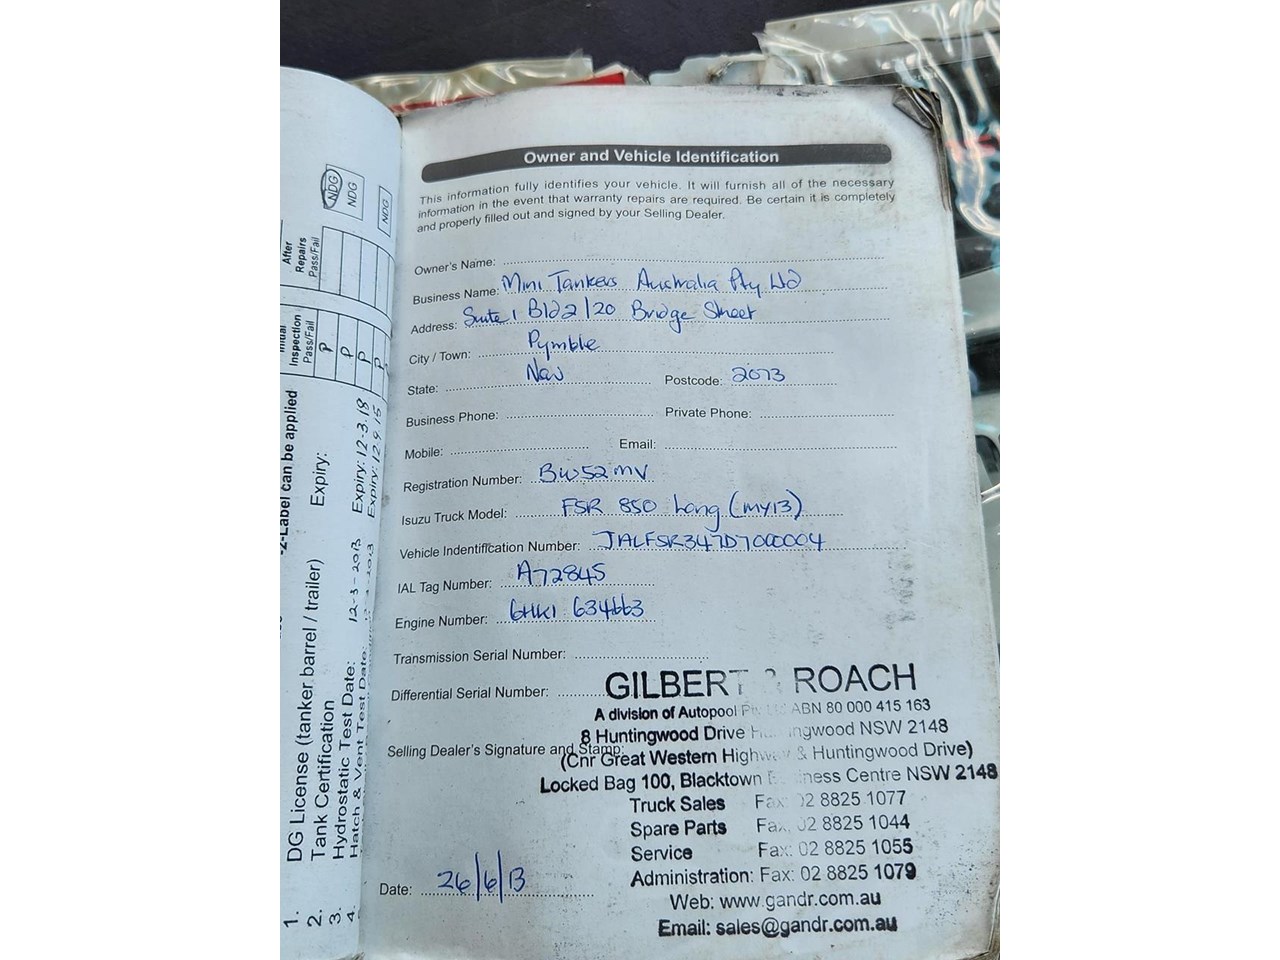 Owner and Vehicle Identification
This information fully identifies your vehicle. It will furnish all of the necessary
information in the event that warranty repairs are required. Be certain it is completely
and properly filled out and signed by your Selling Dealer.
Owner's Name:
Business Name: Mini Tankers Australia Pty Ltd
Address: Suite 1 Bld 2/20 Bridge Street
City / Town: Pymble
State: NSW Postcode: 2073
Business Phone: Private Phone:
Mobile: Email:
Registration Number: BW52MV
Isuzu Truck Model: FSR 850 Long (MY13)
Vehicle Indentification Number: JALFSR347D7000004
IAL Tag Number: A72845
Engine Number: 6HK1 634663
Transmission Serial Number:
Differential Serial Number:
Selling Dealer's Signature and Stamp:
GILBERT & ROACH
A division of Autopool ABN 80 000 415 163
8 Huntingwood Drive Huntingwood NSW 2148
(Cnr Great Western Highway & Huntingwood Drive)
Locked Bag 100, Blacktown Business Centre NSW 2148
Truck Sales Fax: 02 8825 1077
Spare Parts Fax: 02 8825 1044
Service Fax: 02 8825 1055
Administration: Fax: 02 8825 1079
Web: www.gandr.com.au
Email: sales@gandr.com.au
Date: 26/6/13
NDG
NDG
NDG
After
Repairs
Pass/Fail
Inspection
Pass/Fail
P
P
P
P
-Label can be applied
1. DG License (tanker barrel / trailer) Expiry:
2. Tank Certification
3. Hydrostatic Test Date: 12-3-2013 Expiry: 12.3.18
4. Hatch & Vent Test Date: Expiry: 12.9.15